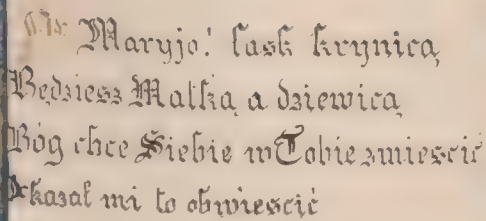 Maryjo! łask krynicą
Będziesz Matką, a dziewicą
Bóg chce Siebie w Tobie zmieścić
kazał mi to obwieścić